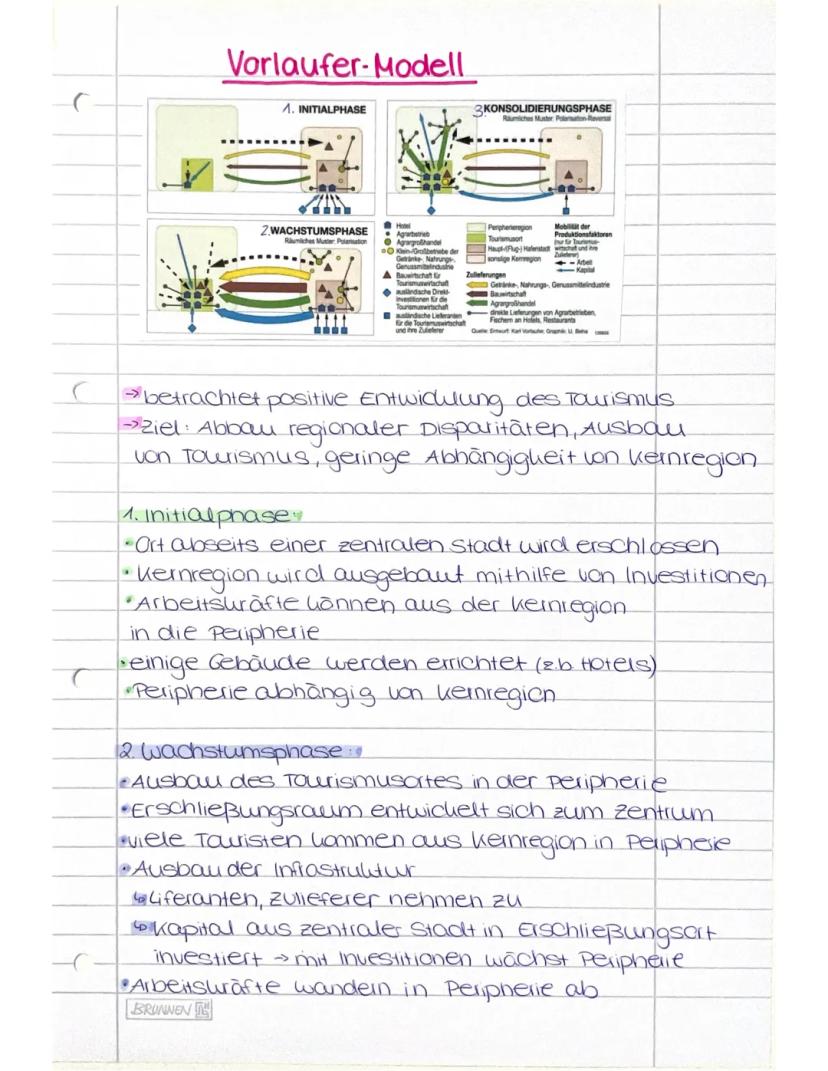 Vorlaufer-Modell
1. INITIALPHASE
3. KONSOLIDIERUNGSPHASE
Räumliches Muster: Polarisation-Reversal
2. WACHSTUMSPHASE
Räumliches Muster: Polarisation
Hotel
Agrarbetrieb
Agrargroßhandel
Klein-/Großbetriebe der
Getränke-, Nahrungs-,
Genussmittelindustrie
Bauwirtschaft für
Tourismuswirtschaft
ausländische Direkt-
investitionen für die
Tourismuswirtschaft
ausländische Lieferanten
für die Tourismuswirtschaft
und ihre Zulieferer
Peripherieregion
Tourismusort
Haupt-/(Flug-) Hafenstadt
sonstige Kernregion
Mobilität der
Produktionsfaktoren
(nur für Tourismus-
wirtschaft und ihre
Zulieferer)
Arbeit
Kapital
Zulieferungen
Getränke-, Nahrungs-, Genussmittelindustrie
Bauwirtschaft
Agrargroßhandel
direkte Lieferungen von Agrarbetrieben,
Fischern an Hotels, Restaurants
Quelle: Entwurf: Karl Vorlaufer, Graphik: U. Beha
→ betrachtet positive Entwicklung des Tourismus
→ Ziel: Abbau regionaler Disparitäten, Ausbau
von Tourismus, geringe Abhängigkeit von Kernregion
1. Initialphase:
• Ort abseits einer zentralen Stadt wird erschlossen
• Kernregion wird ausgebaut mithilfe von Investitionen
• Arbeitskräfte können aus der Kernregion
in die Peripherie
• einige Gebäude werden errichtet (z.b Hotels)
• Peripherie abhängig von Kernregion
2. Wachstumsphase:
• Ausbau des Tourismusortes in der Peripherie
• Erschließungsraum entwickelt sich zum Zentrum
• viele Touristen kommen aus Kernregion in Peripherie
• Ausbau der Infrastruktur
↳ Liferanten, Zulieferer nehmen zu
↳ Kapital aus zentraler Stadt in Erschließungsort
investiert → mit Investitionen wächst Peripherie
• Arbeitskräfte wandeln in Peripherie ab
BRUNNEN